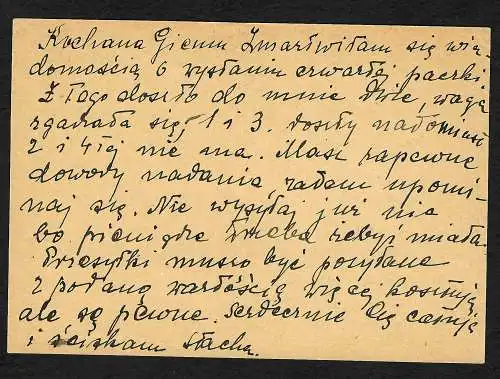 Kochana Gieniu Zmartwiłam się wia-
domością o wysłaniu czwartej paczki.
Z tego doszło do mnie dwie, waga
zgadzała się, 1 i 3. doszły natomiast
2 i 4tej nie ma. Masz zapewne
dowody nadania, zatem upomi-
naj się. Nie wysyłaj już nic
bo pieniądze trzeba żebyś miała.
Przesyłki muszą być posyłane
z podaną wartością więcej kosztują
ale są pewne. Serdecznie Cię całuję
i ściskam Stacha.